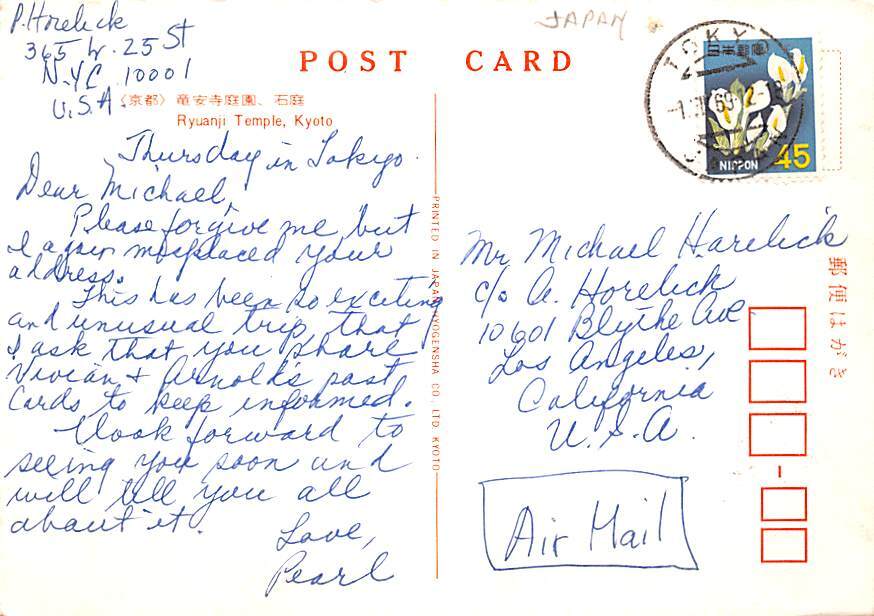 P. Horelick
365 W. 25 St
N.Y.C. 10001
U.S.A.
JAPAN
POST CARD
〈京都〉 竜安寺庭園、石庭
Ryuanji Temple, Kyoto
Thursday in Tokyo.
Dear Michael,
Please forgive me, but
I again misplaced your
address.
This has been so exciting
and unusual trip, that
I ask that you share
Vivian + Arnold's post
cards to keep informed.
I look forward to
seeing you soon and
will tell you all
about it.
Love,
Pearl
PRINTED IN JAPAN KYOGENSHA CO., LTD. KYOTO
TOKYO
69
JAPAN
日本郵便
NIPPON 45
Mr Michael Horelick
c/o A. Horelick
10601 Blythe Ave
Los Angeles,
California
U.S.A.
Air Mail
郵便はがき